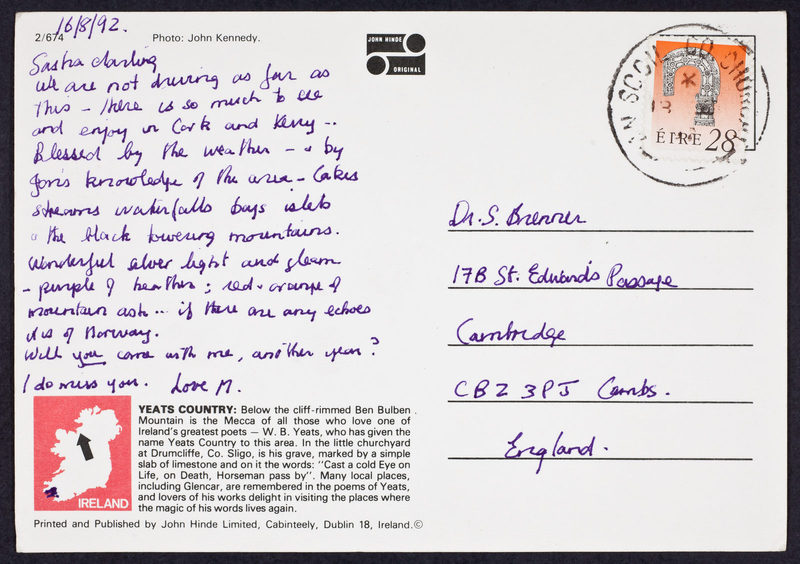 16/8/92.
2/674
Photo: John Kennedy.
JOHN HINDE
ORIGINAL
Sasha darling
We are not driving as far as
this – there is so much to see
and enjoy in Cork and Kerry –.
Blessed by the weather – & by
Jon's knowledge of the area – Lakes
streams waterfalls bays islets
& the black towering mountains.
Wonderful silver light and gleam
– purple of heather; red & orange of
mountain ash... if there are any echoes
it is of Norway.
Will you come with me, another year?
I do miss you. Love M.
ÉIRE 28
Dr. S. Brenner
17B St. Edward's Passage
Cambridge
CB2 3PJ Cambs.
England.
IRELAND
YEATS COUNTRY: Below the cliff-rimmed Ben Bulben
Mountain is the Mecca of all those who love one of
Ireland's greatest poets — W. B. Yeats, who has given the
name Yeats Country to this area. In the little churchyard
at Drumcliffe, Co. Sligo, is his grave, marked by a simple
slab of limestone and on it the words: "Cast a cold Eye on
Life, on Death, Horseman pass by". Many local places,
including Glencar, are remembered in the poems of Yeats,
and lovers of his works delight in visiting the places where
the magic of his words lives again.
Printed and Published by John Hinde Limited, Cabinteely, Dublin 18, Ireland.©